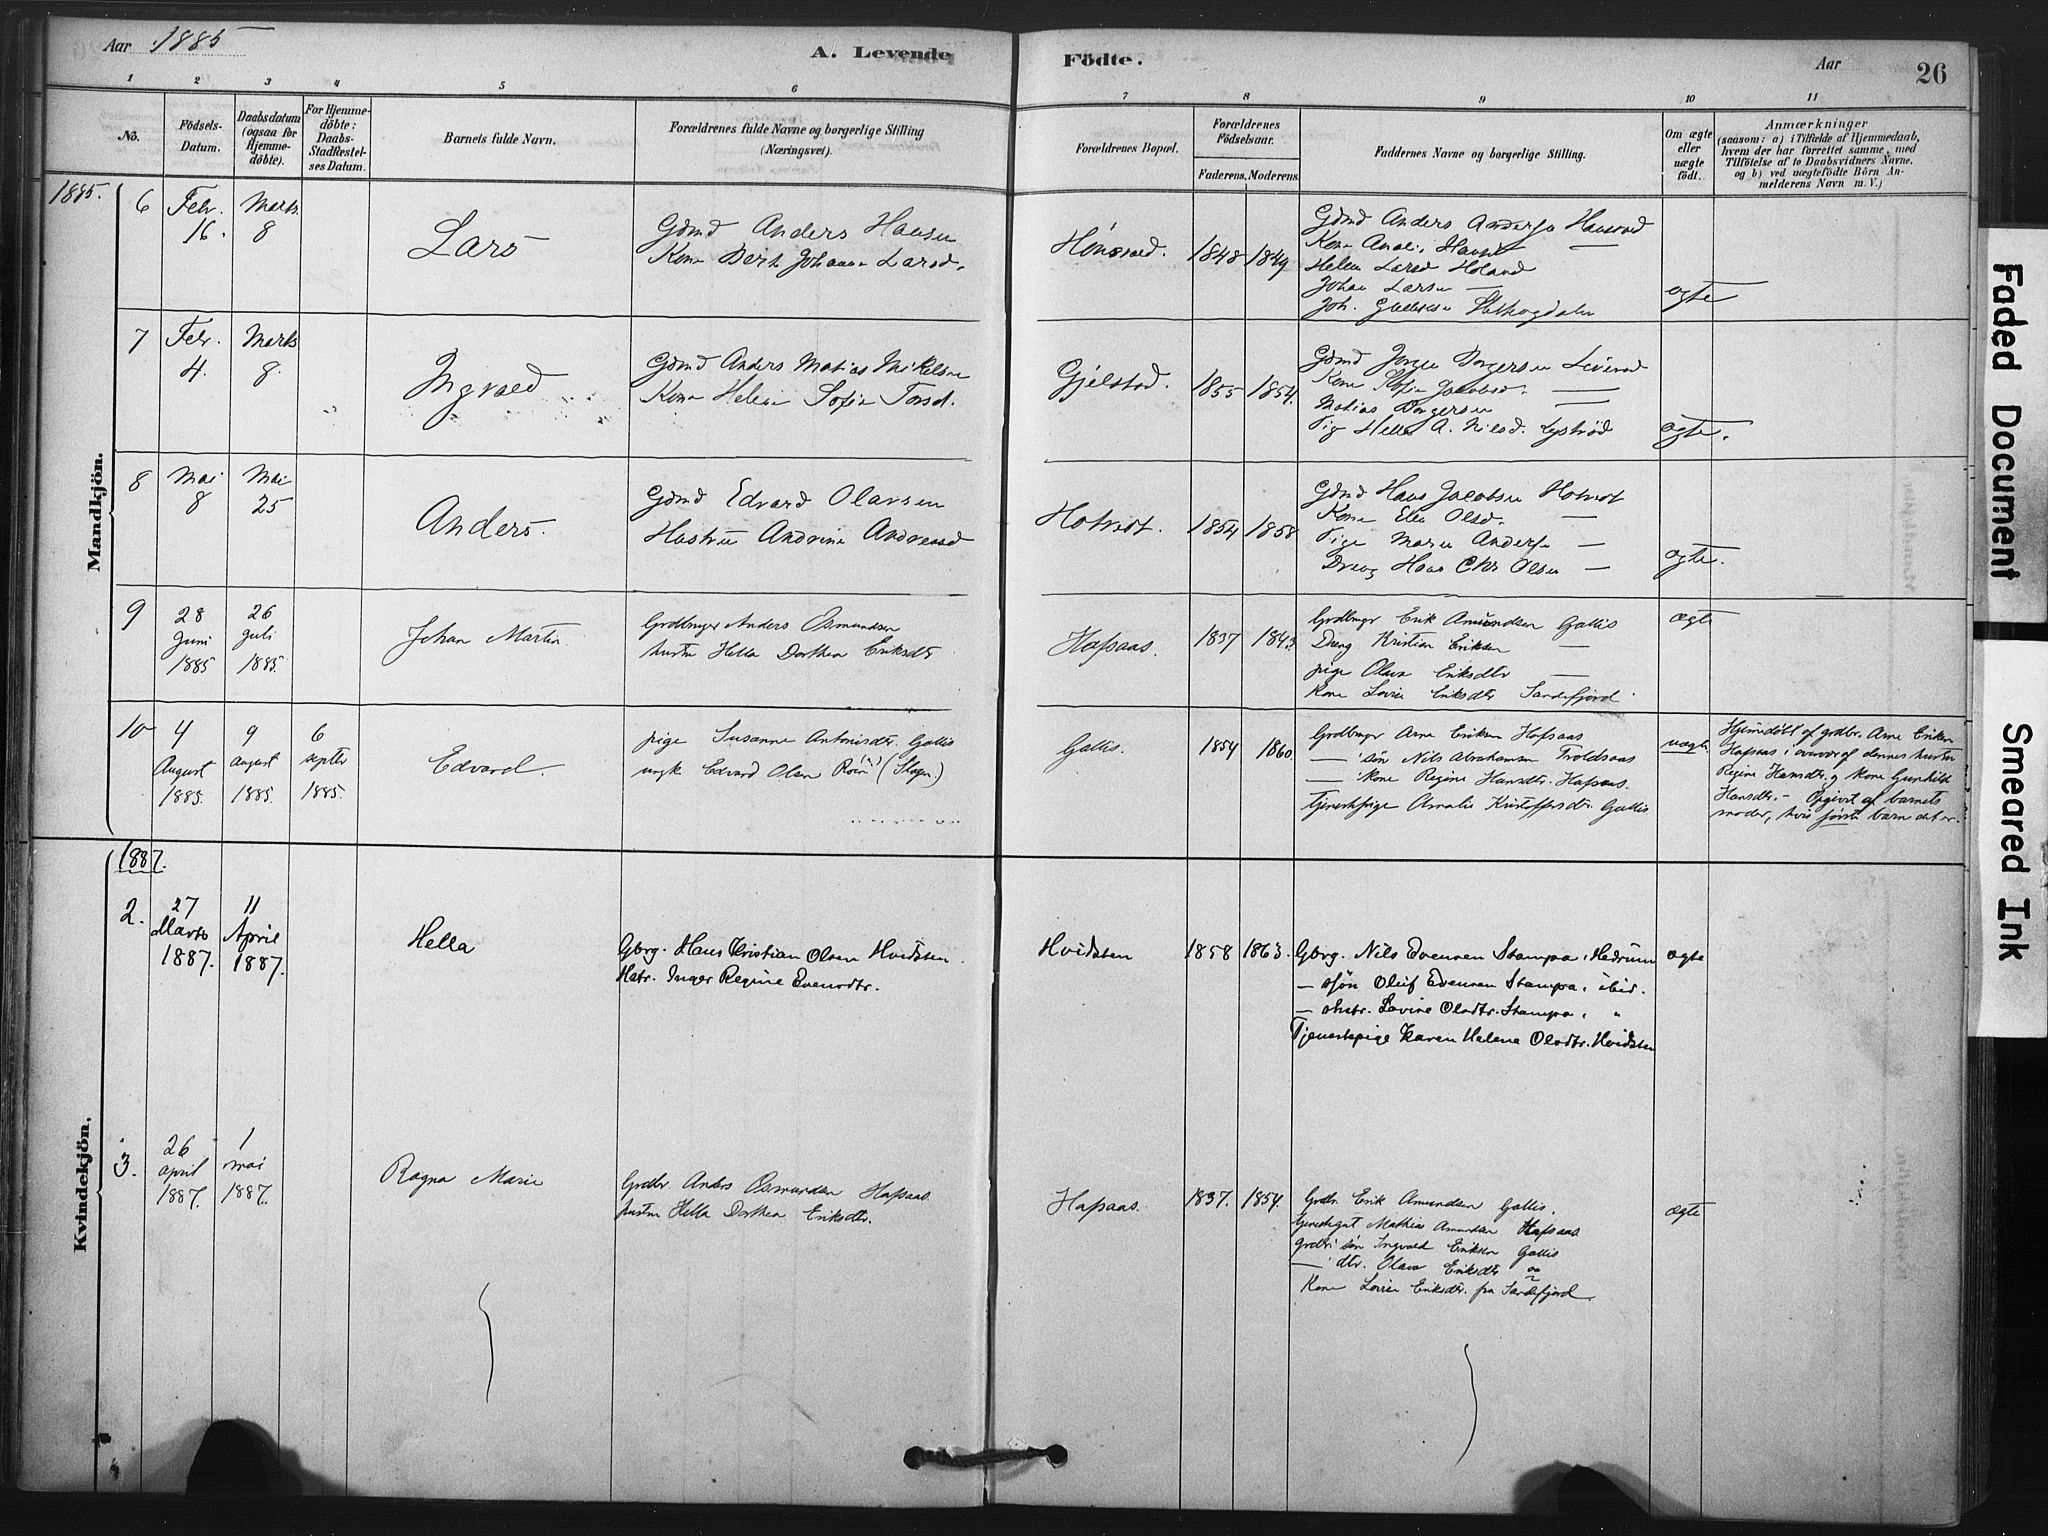 Aar 1885
A. Levende
Födte.
Aar
26
1
2
3
4
5
6
7
8
9
10
11
No.
Födsels-
Datum.
Daabsdatum
(ogsaa for
Hjemme-
döbte).
For Hjemme-
döbte:
Daabs-
Stadfæstel-
ses Datum.
Barnets fulde Navn.
Forældrenes fulde Navne og borgerlige Stilling
(Næringsvei).
Forældrenes Bopæl.
Forældrenes
Födselsaar.
Faderens. Moderens.
Faddernes Navne og borgerlige Stilling.
Om ægte
eller
uægte
födt.
Anmærkninger
(saasom: a) i Tilfælde af Hjemmedaab,
hvem der har forrettet samme, med
Tilföielse af to Daabsvidners Navne.
og b) ved uægtefödte Börn An-
melderens Navn m. V.)
Mandkjön.
1885.
6
Febr.
16.
Marts
8
Lars
Gdmd Anders Hansen
Kone Berte Johanne Larsd.
1848 1849
Gdmd Anders Andersen
Kone
Helen Larsd Holand
Johan Larsen —
Joh.
ægte
7
Febr.
4.
Marts
8.
Ingvald
Gdmd Anders Matias Mikelsen
Kone Helene Sofie Torsd.
Gjelstad.
1855 1854.
Gdmd Jørgen Borgersen
Kone Sofie Jacobsd. —
Matias Borgersen —
Pig Helle A. Nilsd.
ægte.
8
Mai
8
Mai
25
Anders.
Gdmd Edvard Olavsen
Hustru Andrine Andreasd
Hotvedt.
1854 1858
Gdmd Hans Jacobsen Hotvedt
Kone Elen Olsd. —
Pige Maren Andersen —
Dreng Hans Chr Olsen —
ægte.
9
28
Juni
1885
26
Juli
1885.
Johan Martin
Grdbruger Anders Osmundsen
hustru Hella Dorthea Eriksdtr
Hafsaas.
1837 1843
Grdbrugr Erik Amundsen Gallis
Dreng Kristian Eriksen —
pige Olava Eriksdtr —
Kone Lovise Eriksdtr Sandefjord.
ægte
10
4
August
1885.
9
august
1885.
6
septbr
1885.
Edvard.
pige Susanne Antonisdtr. Gallis
ungk Edvard Olsen (Skogn.)
Gallis.
1854 1860.
Grdbruger Arne Eriksen Hafsaas
— søn Nils Abrahamsen Troldsaas
— kone Regine Hansdtr. Hafsaas.
tjenestpige Amalie Kristoffersdtr. Gallis
uægte
Hjemdöbt af grdbr. Arne Eriksen
Hafsaas i overvær af dennes hustru
Regine Hansdtr. og kone Gunhild
Hansdtr. - Opgivet af barnets
moder, hvis første barn det er.
Kvindekjön.
1887.
2.
27
Marts
1887.
11
April
1887.
Hella
Gbrg. Hans Kristian Olsen Hvidsten.
Hstr. Inger Regine Evensdtr.
Hvidsten
1858 1863.
Gbrg. Nils Evensen Stampa, Hedrum
— søn Oluf Evensen Stampa, ibid.
— hstr. Lovise Olsdtr. Stampa, "
Tjenestepige Karen Helene Olsdtr. Hvidsten
ægte
3.
26
april
1887.
1
mai
1887.
Ragna Marie
Grdbr. Anders Osmundsen Hafsaas.
hustru Hella Dorthea Eriksdtr.
Hafsaas.
1837. 1854.
Grdbr. Erik Amundsen Gallis.
tjenestegut Mathias Amundsen Hafsaas.
grdbr. søn Ingvald Eriksen Gallis
— dtr. Olava Eriksdtr
Kone Lovise Eriksdtr. fra Sandefjord.
ægte
Faded Document
Smeared Ink